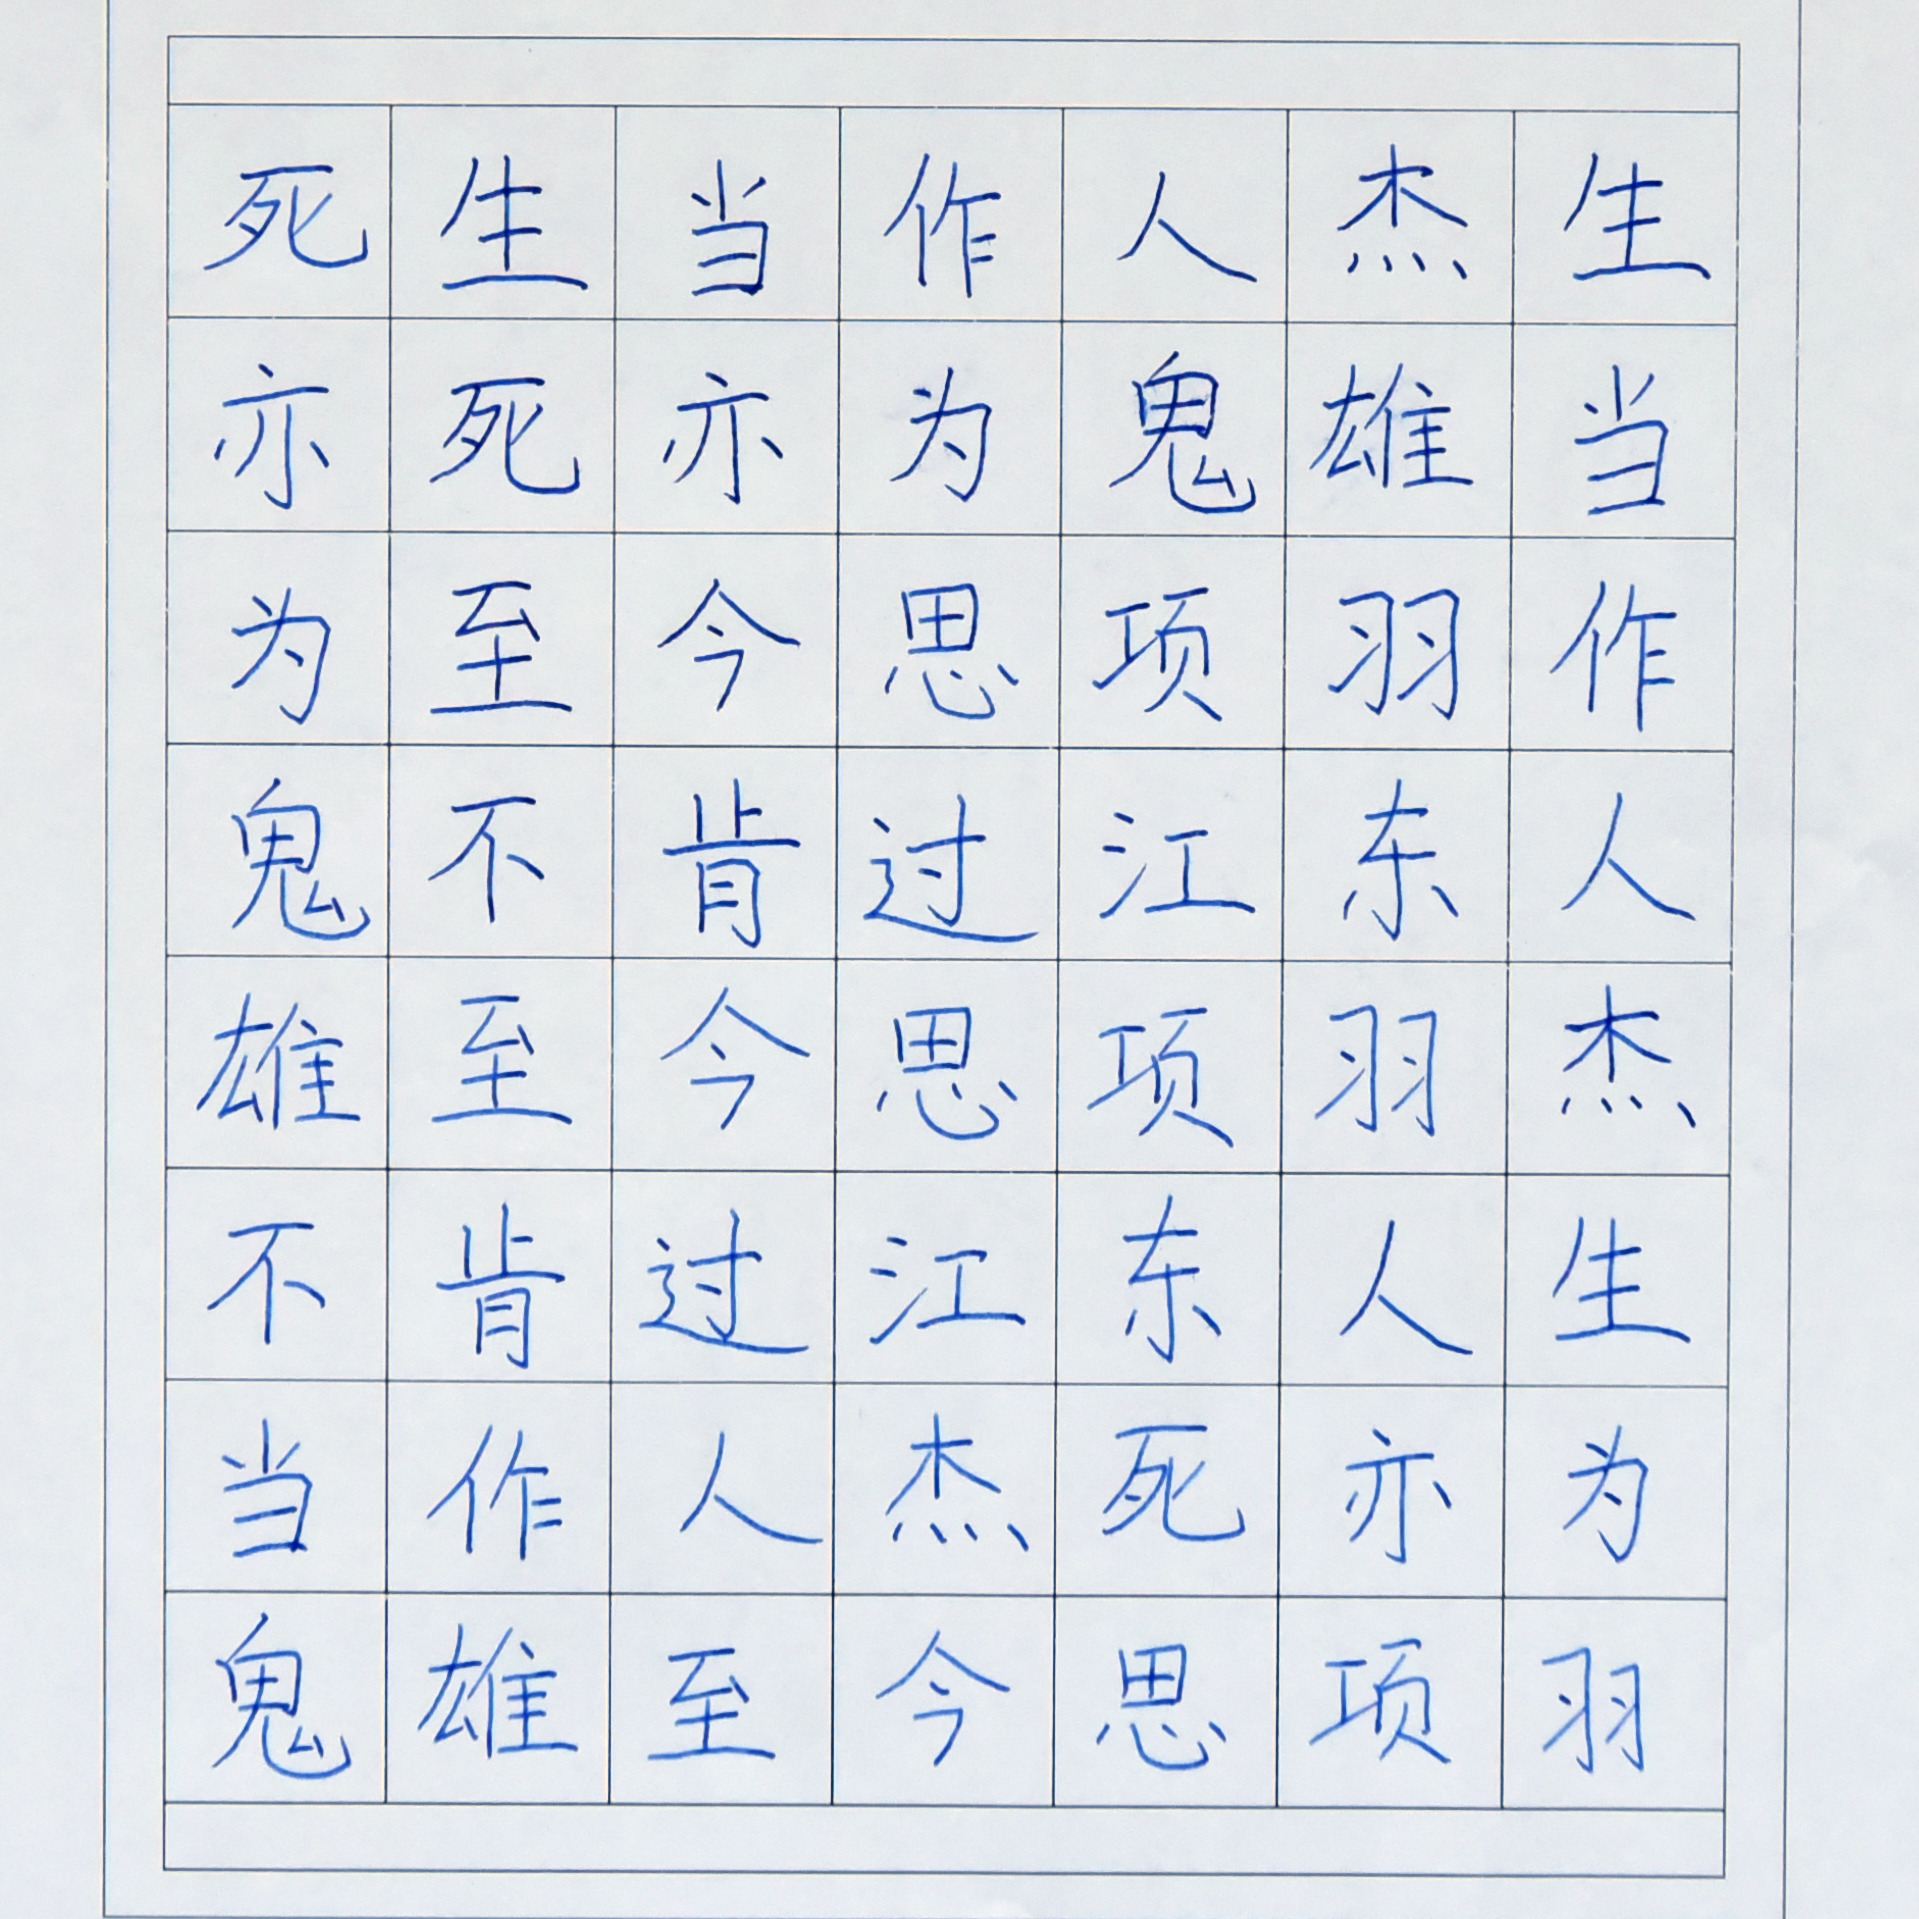 死生当作人杰生
亦死亦为鬼雄当
为至今思项羽作
鬼不肯过江东人
雄至今思项羽杰
不肯过江东人生
当作人杰死亦为
鬼雄至今思项羽